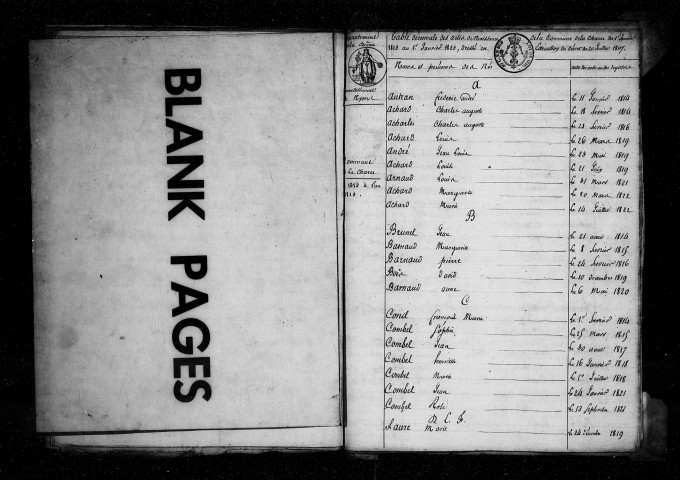 BLANK PAGES
Table décennale des actes de Naissance de la Commune de la Charce du 1er Janvier
1813 au 1er Janvier 1823, dressée en
Noms et prénoms des Nés
A
Autran le 11 Janvier 1814
Achard Charles auguste le 18 février 1814
Charles auguste le 23 février 1816
Achard Louis le 26 Mars 1819
André Jean Louis le 23 Mai 1819
Achard Louise le 21 1819
Arnaud Louis le 31 Mars 1821
Achard Marguerite le 20 Mars 1822
Achard Marie le 14 Juillet 1822
B
Brunel Jean le 21 1814
Barnaud Marguerite le 8 février 1815
Barnaud pierre le 24 février 1816
Bois david le 10 1819
Barnaud anne le 6 Mai 1820
C
Conil Marie le 1er février 1814
Combel Sophie le 15 Mars 1815
Combel Jean le 30 aout 1817
Combel le 16 Janvier 1818
Combel Marie le 1er Juillet 1818
Combel Jean le 24 Janvier 1821
Combel Rose le 13 Septembre 1821
D. E. F.
faure Marie le 24 1819
Commune
de la Charce